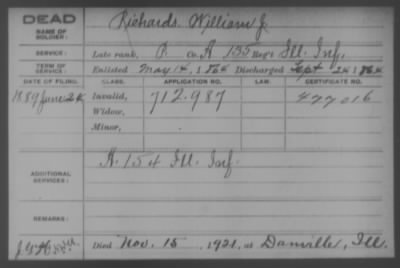 DEAD
NAME OF SOLDIER:
Richards, William J.
SERVICE:
Late rank, P. Co. A 135 Reg't Ill. Inf.
TERM OF SERVICE:
Enlisted May 14, 1864 Discharged Sept 28 1864
DATE OF FILING. CLASS. APPLICATION NO. LAW. CERTIFICATE NO.
1889 June 24 Invalid, 712.987 477016
Widow,
Minor,
ADDITIONAL SERVICES:
A. 154 Ill. Inf.
REMARKS:
Died Nov. 15, 1921, at Danville, Ill.